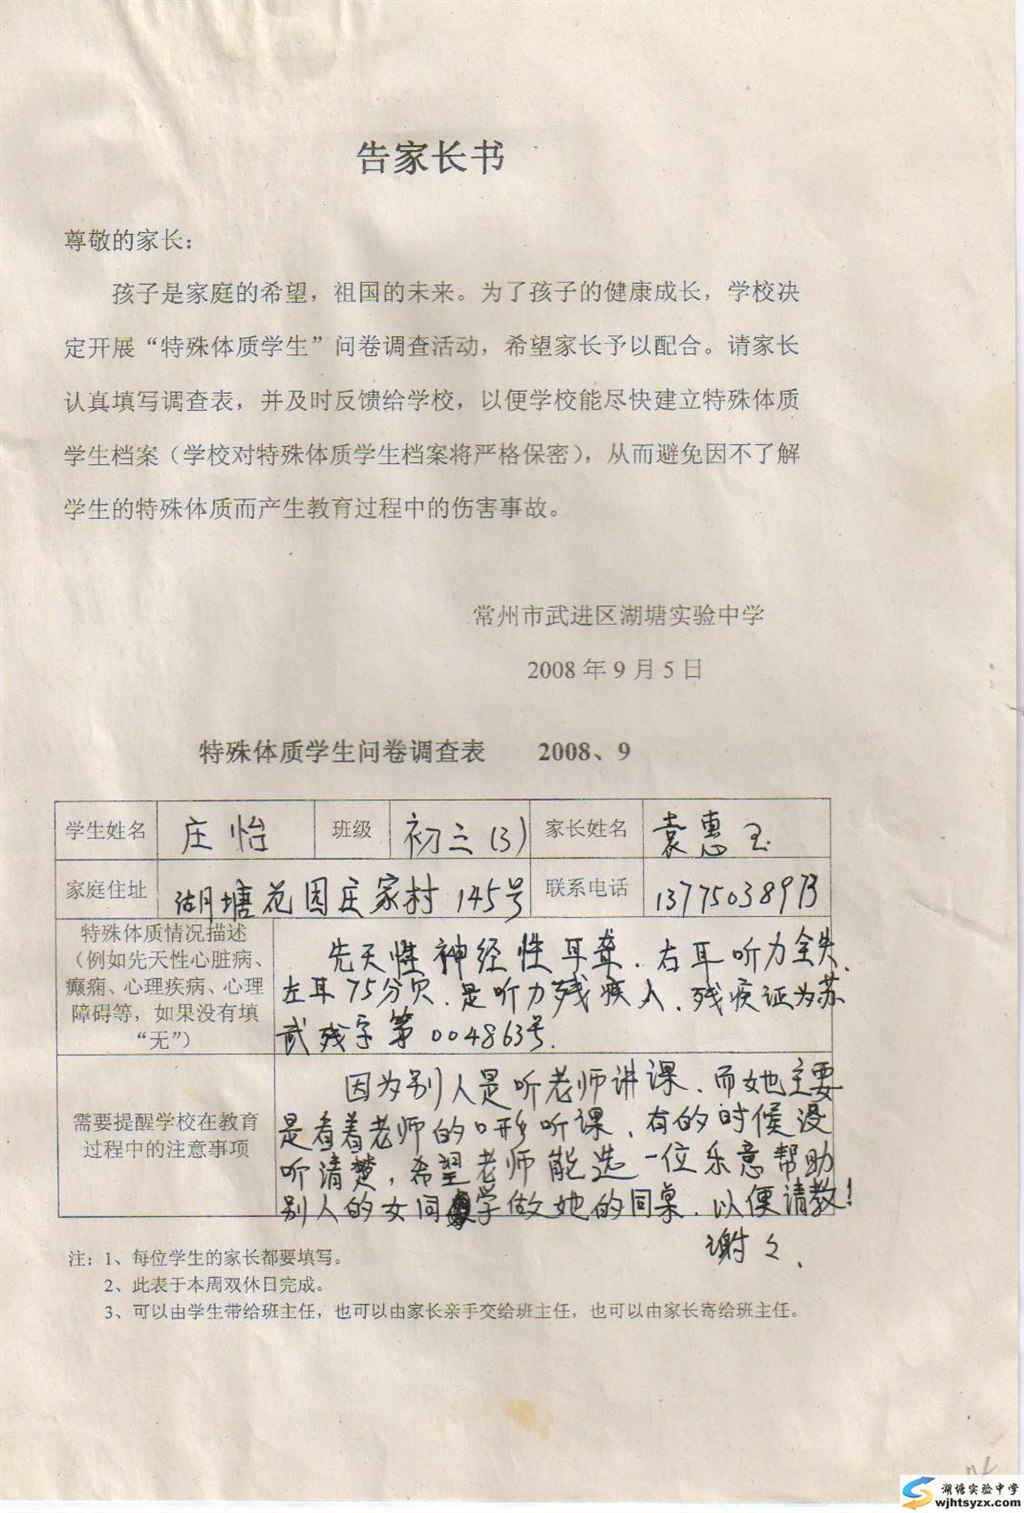 告家长书
尊敬的家长：
孩子是家庭的希望，祖国的未来。为了孩子的健康成长，学校决
定开展“特殊体质学生”问卷调查活动，希望家长予以配合。请家长
认真填写调查表，并及时反馈给学校，以便学校能尽快建立特殊体质
学生档案（学校对特殊体质学生档案将严格保密），从而避免因不了解
学生的特殊体质而产生教育过程中的伤害事故。
常州市武进区湖塘实验中学
2008 年 9 月 5 日
特殊体质学生问卷调查表 2008、9
学生姓名 庄怡 班级 初三(3) 家长姓名 袁惠玉
家庭住址 湖塘花园庄家村145号 联系电话
特殊体质情况描述
（例如先天性心脏病、
癫痫、心理疾病、心理
障碍等，如果没有填
“无”）
先天性神经性耳聋．右耳听力全失．
左耳75分贝．是听力残疾人．残疾证为苏
武残字第004863号．
需要提醒学校在教育
过程中的注意事项
因为别人是听老师讲课．而她主要
是看着老师的口形听课．有的时候没
听清楚，希望老师能选一位乐意帮助
别人的女同学做她的同桌．以便请教！
谢々．
注：1、每位学生的家长都要填写。
2、此表于本周双休日完成。
3、可以由学生带给班主任，也可以由家长亲手交给班主任，也可以由家长寄给班主任。
湖塘实验中学
wjhtsyzx.com